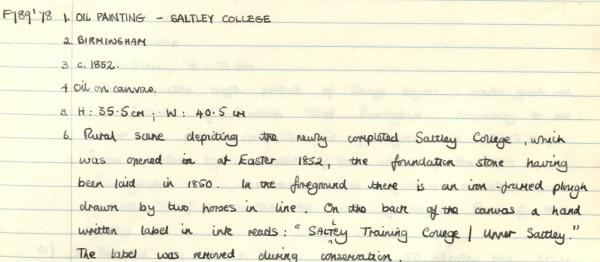 F789'78 1. OIL PAINTING – SALTLEY COLLEGE
2. BIRMINGHAM
3. c. 1852.
4. Oil on canvas.
5. H: 35.5 cm ; W: 40.5 cm
6. Rural scene depicting the newly completed Saltley College, which
was opened in at Easter 1852, the foundation stone having
been laid in 1850. In the foreground there is an iron-framed plough
drawn by two horses in line. On the back of the canvas a hand
written label in ink reads: "SALTLEY Training College / Saltley."
The label was removed during conservation.